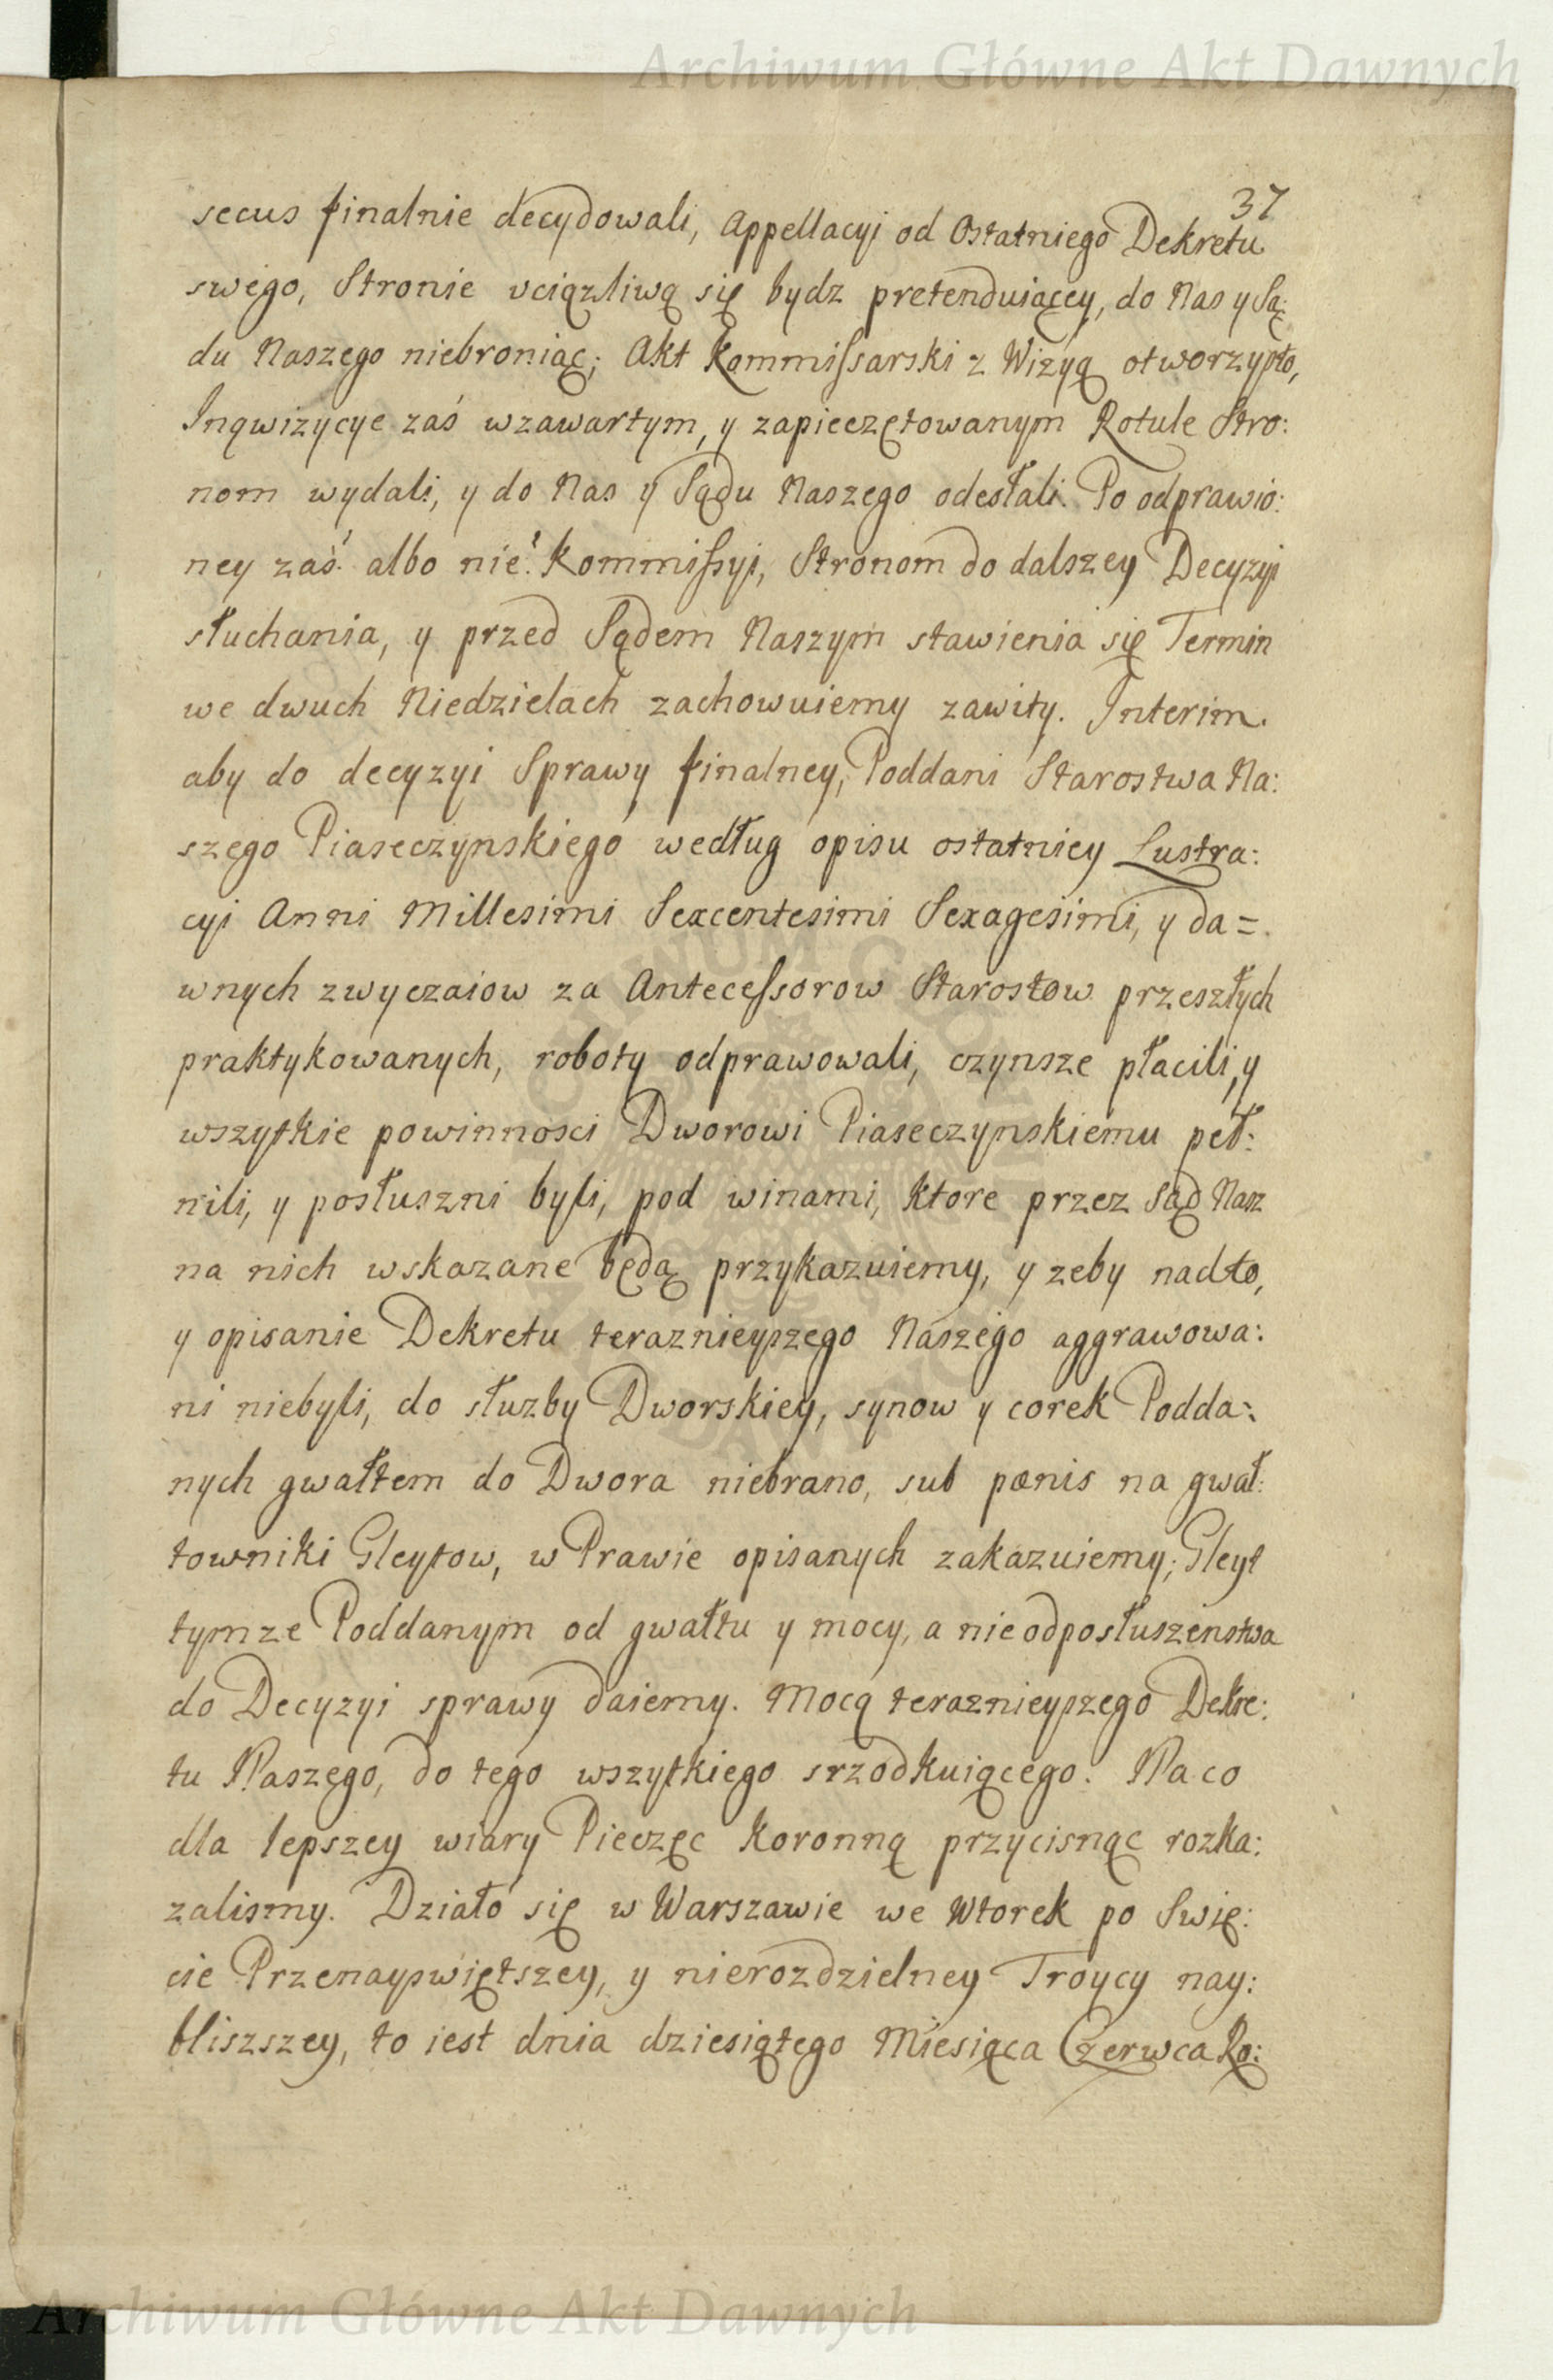 Archiwum Główne Akt Dawnych
37
secus finalnie decydowali, Appellacyi od Ostatniego Dekretu
swego, Stronie uciązliwą się bydz pretenduiącey, do Nas y Są:
du Naszego niebroniąc; Akt Kommissarski z Wizyą otworzysto,
Inqwizycye zaś wzawartym, y zapieczętowanym Rotule Stro:
nom wydali, y do Nas y Sądu Naszego odesłali. Po odprawio:
ney zaś albo nie Kommissyi, Stronom do dalszey Decyzyi
słuchania, y przed Sądem Naszym stawienia się Termin
we dwuch Niedzielach zachowuiemy zawity. Interim.
aby do decyzyi Sprawy finalney, Poddani Starostwa Na:
szego Piaseczynskiego według opisu ostatniey Lustra:
cyi Anni Millesimi Sexcentesimi Sexagesimi, y da=
wnych zwyczaiow za Antecessorow Starostow przeszłych
praktykowanych, roboty odprawowali, czynsze płacili, y
wszystkie powinnosci Dworowi Piaseczynskiemu peł:
nili, y posłuszni byli, pod winami, ktore przez Sąd Nasz
na nich wskazane będą przykazuiemy, y zeby nadto,
y opisanie Dekretu teraznieyszego Naszego aggrawowa:
ni niebyli, do służby Dworskiey, synow y corek Podda:
nych gwałtem do Dwora niebrano, sub pœnis na gwał:
towniki Gleytow, w Prawie opisanych zakazuiemy; Gleyt
tymze Poddanym od gwałtu y mocy, a nie odposłuszenstwa
do Decyzyi sprawy daiemy. Mocą teraznieyszego Dekre:
tu Naszego, do tego wszystkiego srzodkuiącego. Na co
dla lepszey wiary Pieczęc Koronną przycisnąc rozka:
zalismy. Działo się w Warszawie we Wtorek po Swię:
cie Przenayswiętszey, y nierozdzielney Troycy nay:
bliszszey, to iest dnia dziesiątego Miesiąca Czerwca Ro:
Archiwum Główne Akt Dawnych